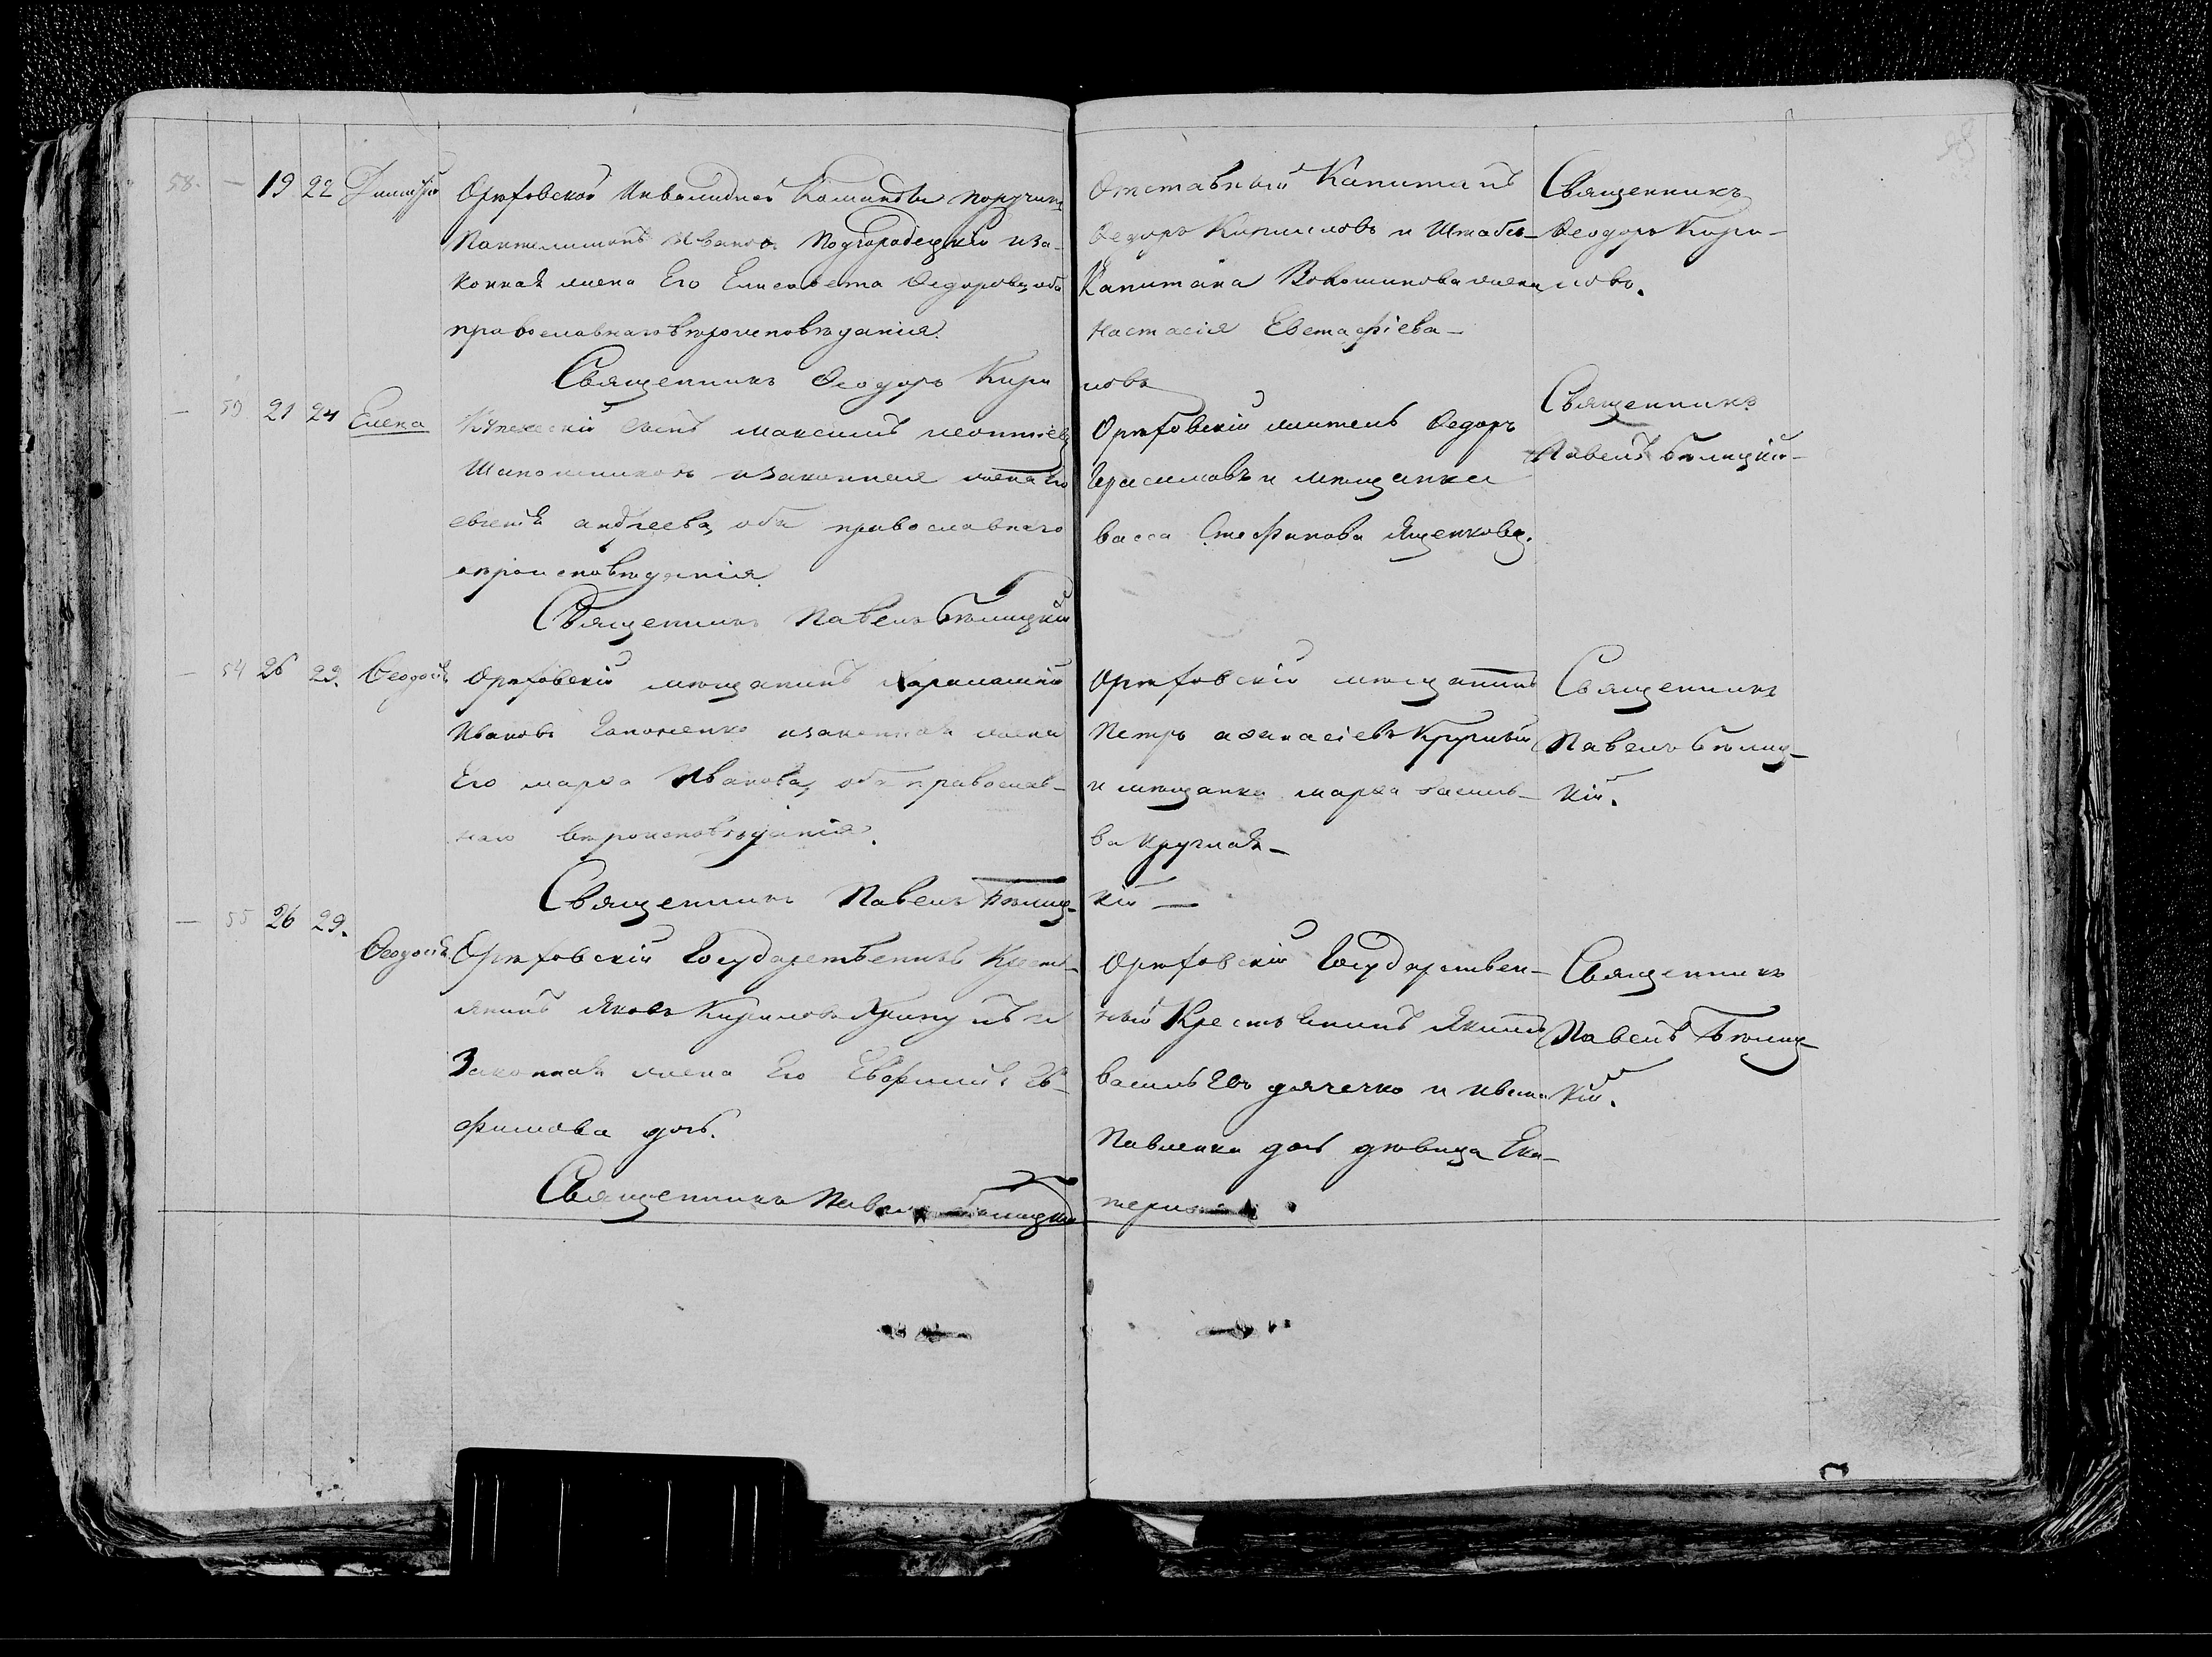 58. — 19 22 Димитрій
Орѣховской Инвалидной Команды поручикъ
Пантелимонъ Ивановъ Подгородецкій и за-
конная жена Его Елисавета Федорова, оба
православнаго вѣроисповѣданія.
Священникъ Феодоръ Кири
ловъ
Отставный Капитанъ
Федоръ Кириловъ и Штабсъ-
Капитана Волошинова жена
Настасія Евстафіева —
Священникъ
Феодоръ Кири-
ловъ.
— 53 21 24 Елена
сынъ Максимъ Леонтіевъ
Шапошниковъ и законная жена Его
Евгенія Андреева, оба православнаго
вѣроисповѣданія.
Священникъ Павелъ Бѣлицкій
Орѣховскій житель Федоръ
Герасимовъ и мѣщанка
Васса Стефанова Яценкова.
Священникъ
Павелъ Бѣлицкій —
— 54 26 29. Феодосія
Орѣховскій мѣщанинъ Харлампій
Ивановъ Гапоненко и законная жена
Его Марфа Иванова, оба православ-
наго вѣроисповѣданія.
Священникъ Павелъ Бѣлиц-
кій —
Орѣховскій мѣщанинъ
Петръ Афанасіевъ Круглый
и мѣщанка Марфа Василь-
ва Круглая —
Священникъ
Павелъ Бѣлиц-
кій.
— 55 26 29.
Феодосія
Орѣховскій Государственный Кресть-
янинъ Яковъ Кириловъ и
Законная жена Его Евфимія Ев-
фимова дочь.
Священникъ Павелъ Бѣлицкій
Орѣховскій Государствен-
ный Крестьянинъ Якимъ
Васильевъ Дячечко и Ивана
Павленка дочь дѣвица Ека-
терина
Священникъ
Павелъ Бѣлиц-
кій.